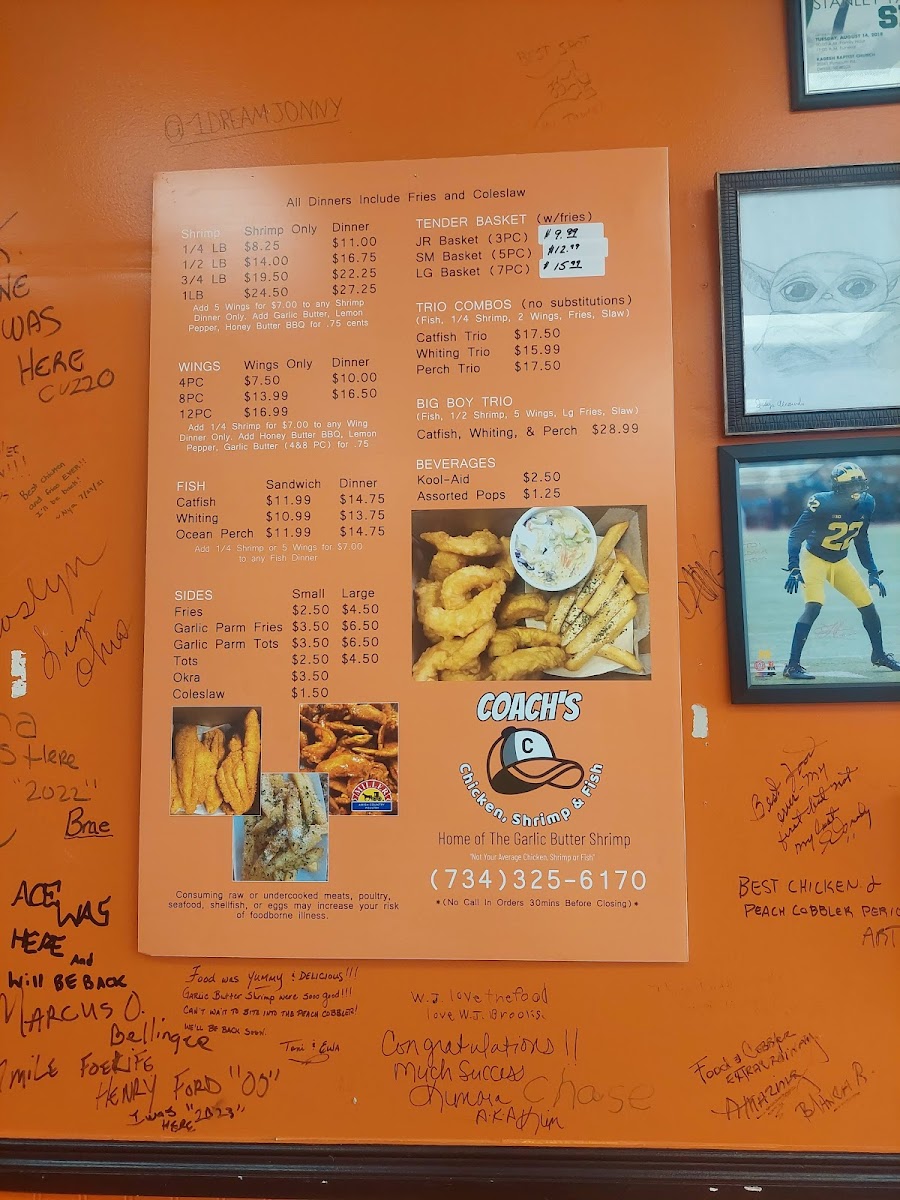 @1DREAMJONNY
STANLEY
TUESDAY, AUGUST 14, 2018
All Dinners Include Fries and Coleslaw
Shrimp Shrimp Only Dinner
1/4 LB $8.25 $11.00
1/2 LB $14.00 $16.75
3/4 LB $19.50 $22.25
1LB $24.50 $27.25
Add 5 Wings for $7.00 to any Shrimp
Dinner Only. Add Garlic Butter, Lemon
Pepper, Honey Butter BBQ for .75 cents
WINGS Wings Only Dinner
4PC $7.50 $10.00
8PC $13.99 $16.50
12PC $16.99
Add 1/4 Shrimp for $7.00 to any Wing
Dinner Only. Add Honey Butter BBQ, Lemon
Pepper, Garlic Butter (4&8 PC) for .75
FISH Sandwich Dinner
Catfish $11.99 $14.75
Whiting $10.99 $13.75
Ocean Perch $11.99 $14.75
Add 1/4 Shrimp or 5 Wings for $7.00
to any Fish Dinner
SIDES Small Large
Fries $2.50 $4.50
Garlic Parm Fries $3.50 $6.50
Garlic Parm Tots $3.50 $6.50
Tots $2.50 $4.50
Okra $3.50
Coleslaw $1.50
MILLER
Consuming raw or undercooked meats, poultry,
seafood, shellfish, or eggs may increase your risk
of foodborne illness.
TENDER BASKET (w/fries)
JR Basket (3PC) $9.99
SM Basket (5PC) $12.99
LG Basket (7PC) $15.99
TRIO COMBOS (no substitutions)
(Fish, 1/4 Shrimp, 2 Wings, Fries, Slaw)
Catfish Trio $17.50
Whiting Trio $15.99
Perch Trio $17.50
BIG BOY TRIO
(Fish, 1/2 Shrimp, 5 Wings, Lg Fries, Slaw)
Catfish, Whiting, & Perch $28.99
BEVERAGES
Kool-Aid $2.50
Assorted Pops $1.25
COACH'S
C
Chicken, Shrimp & Fish
Home of The Garlic Butter Shrimp
"Not Your Average Chicken, Shrimp or Fish"
(734)325-6170
*(No Call In Orders 30mins Before Closing)*
WAS
HERE
CUZZO
Best chicken
and fries EVER!!
I'll be back"
Ohio
Here
"2022"
Brae
ACE
WAS
HERE
And
Will BE BACK
MARCUS O.
Bellinger
HENRY FORD "05"
I WAS "2023"
HERE
Food was YUMMY & DELICIOUS!!!
GARLIC BUTTER SHRIMP WERE SOOO GOOD!!!
CAN'T WAIT TO BITE INTO THE PEACH COBBLER!
WE'LL BE BACK SOON.
W.J. love the food
love W.J. Brooks
Congratulations!!
Much Success
AKA Kim
Chase
22
Best food
ever - my
first but not
my last
BEST CHICKEN &
PEACH COBBLER PERIO
ART
Food & Cobbler
EXTRAORDINARY
AMAZING